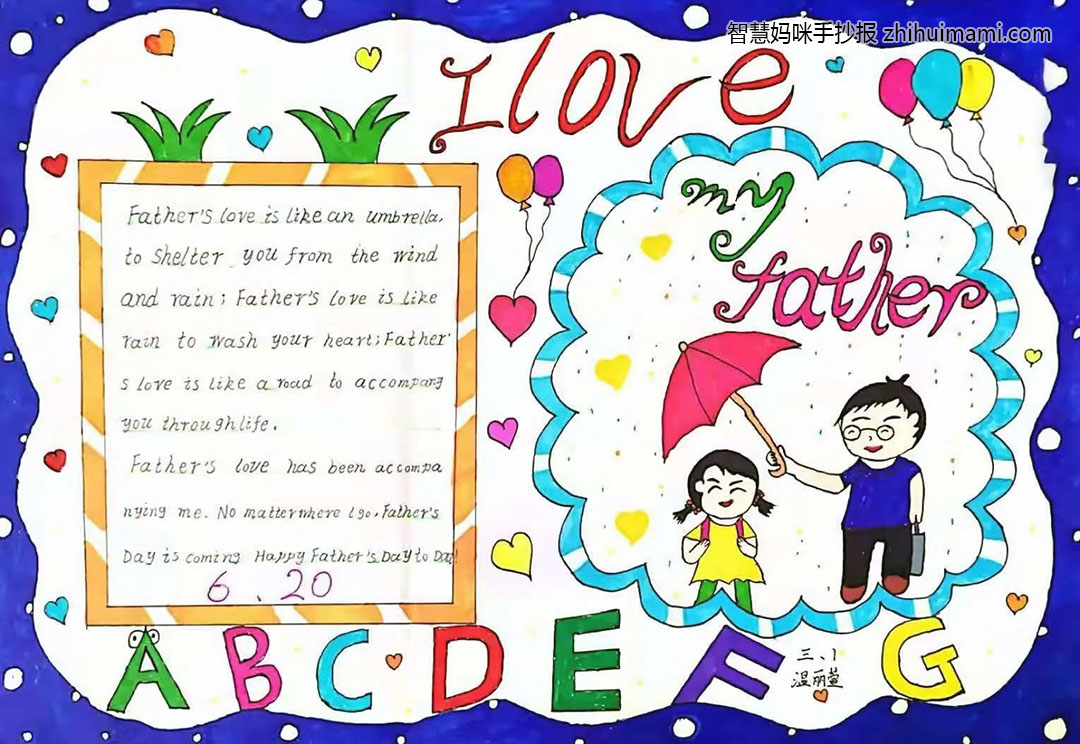 智慧妈咪手抄报 zhihuimami.com
I love
my
father
Father's love is like an umbrella,
to Shelter you from the wind
and rain; Father's love is like
rain to wash your heart; Father'
s love is like a road to accompany
you through life.
Father's love has been accompa
nying me. No matter where I go, Father's
Day is coming Happy Father's Day to Dad!
6.20
A B C D E F G
三、1
温丽萱